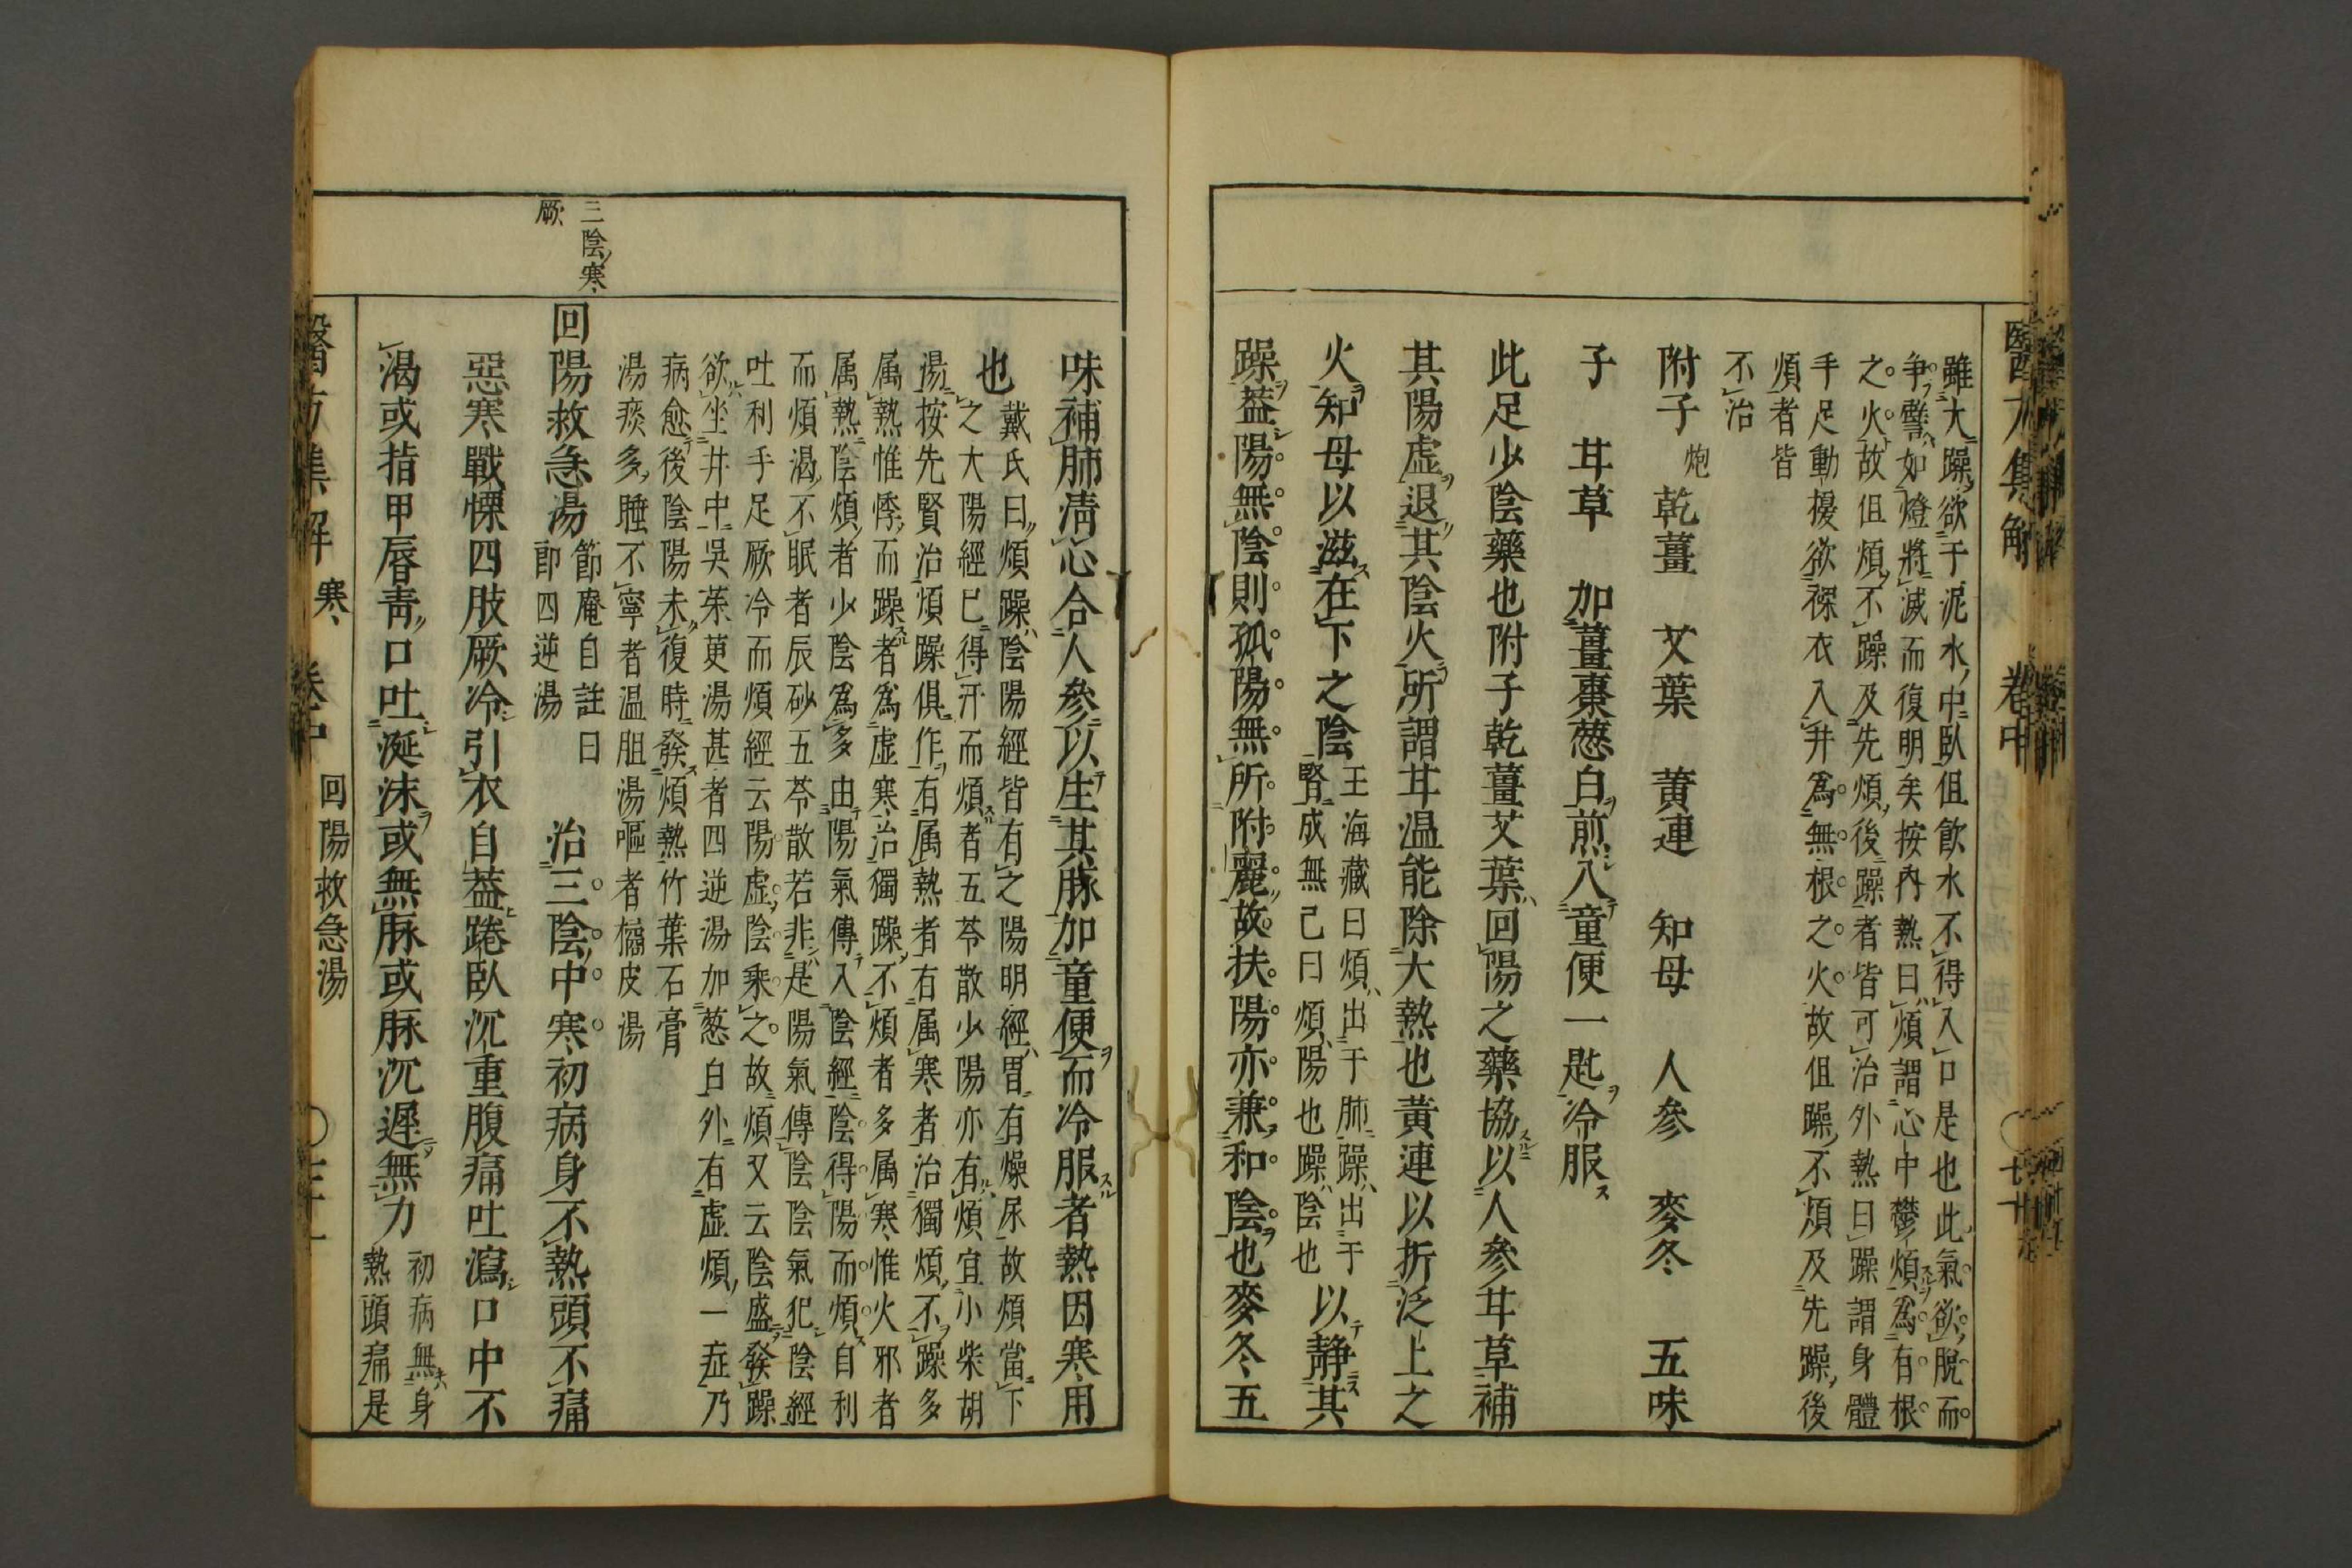 雖大躁欲于泥水中臥但飮水不得入口是也此氣欲脫而
争譬如燈將滅而復明矣按內熱曰煩謂心中鬱煩爲有根
之火故但煩不躁及先煩後躁者皆可治外熱曰躁謂身體
手足動擾欲裸衣入井爲無根之火故但躁不煩及先躁後
煩者皆
不治
附子炮 乾薑 艾葉 黄連 知母 人參 麥冬 五味
子 甘草 加薑棗葱白煎入童便一匙冷服
此足少陰藥也附子乾薑艾葉回陽之藥協以人參甘草補
其陽虚退其陰火所謂甘温能除大熱也黄連以折泛上之
火知母以滋在下之陰
王海藏曰煩出于肺躁出于
腎成無己曰煩陽也躁陰也
以靜其
躁葢陽無陰則孤陽無所附麗故扶陽亦兼和陰也麥冬五
味補肺淸心合人參以生其脉加童便而冷服者熱因寒用
也
戴氏曰煩躁陰陽經皆有之陽明經胃有燥尿故煩當下
之大陽經已得汗而煩者五苓散少陽亦有煩宜小柴胡
湯按先賢治煩躁俱作有属熱者有属寒者治獨煩不躁多
属熱惟悸而躁者爲虚寒治獨躁不煩者多属寒惟火邪者
属熱陰煩者少陰爲多由陽氣傳入陰經陰得陽而煩自利
而煩渴不眠者辰砂五苓散若非是陽氣傳陰陰氣犯陰經
吐利手足厥冷而煩經云陽虚陰乘之故煩又云陰盛發躁
欲坐井中吳茱萸湯甚者四逆湯加葱白外有虚煩一症乃
病愈後陰陽未復時發煩熱竹葉石膏
湯痰多睡不寧者温胆湯嘔者橘皮湯
三陰寒
厥
回陽救急湯
節庵自註曰
即四逆湯
治三陰中寒初病身不熱頭不痛
惡寒戰慄四肢厥冷引衣自葢踡臥沉重腹痛吐瀉口中不
渴或指甲唇靑口吐涎沫或無脉或脉沉遲無力
初病無身
熱頭痛是
醫方集解 寒 卷中 回陽救急湯